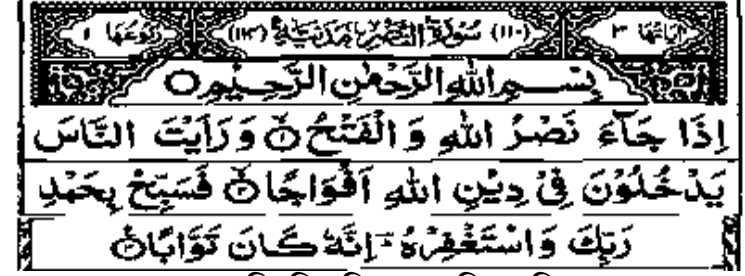 اٰيَاتُهَا ٣ (١١٠) سُوْرَةُ النَّصْرِ مَدَنِيَّةٌ (١١٤) رُكُوْعُهَا ١
بِسْــمِ اللّٰهِ الرَّحْمٰنِ الرَّحِــيْمِ ○
اِذَا جَآءَ نَصْرُ اللّٰهِ وَ الْفَتْحُ ۙ﴿١﴾ وَ رَاَيْتَ النَّاسَ
يَدْخُلُوْنَ فِيْ دِيْنِ اللّٰهِ اَفْوَاجًا ۙ﴿٢﴾ فَسَبِّحْ بِحَمْدِ
رَبِّكَ وَ اسْتَغْفِرْهُ ؔ اِنَّهٗ كَانَ تَوَّابًا ﴿٣﴾